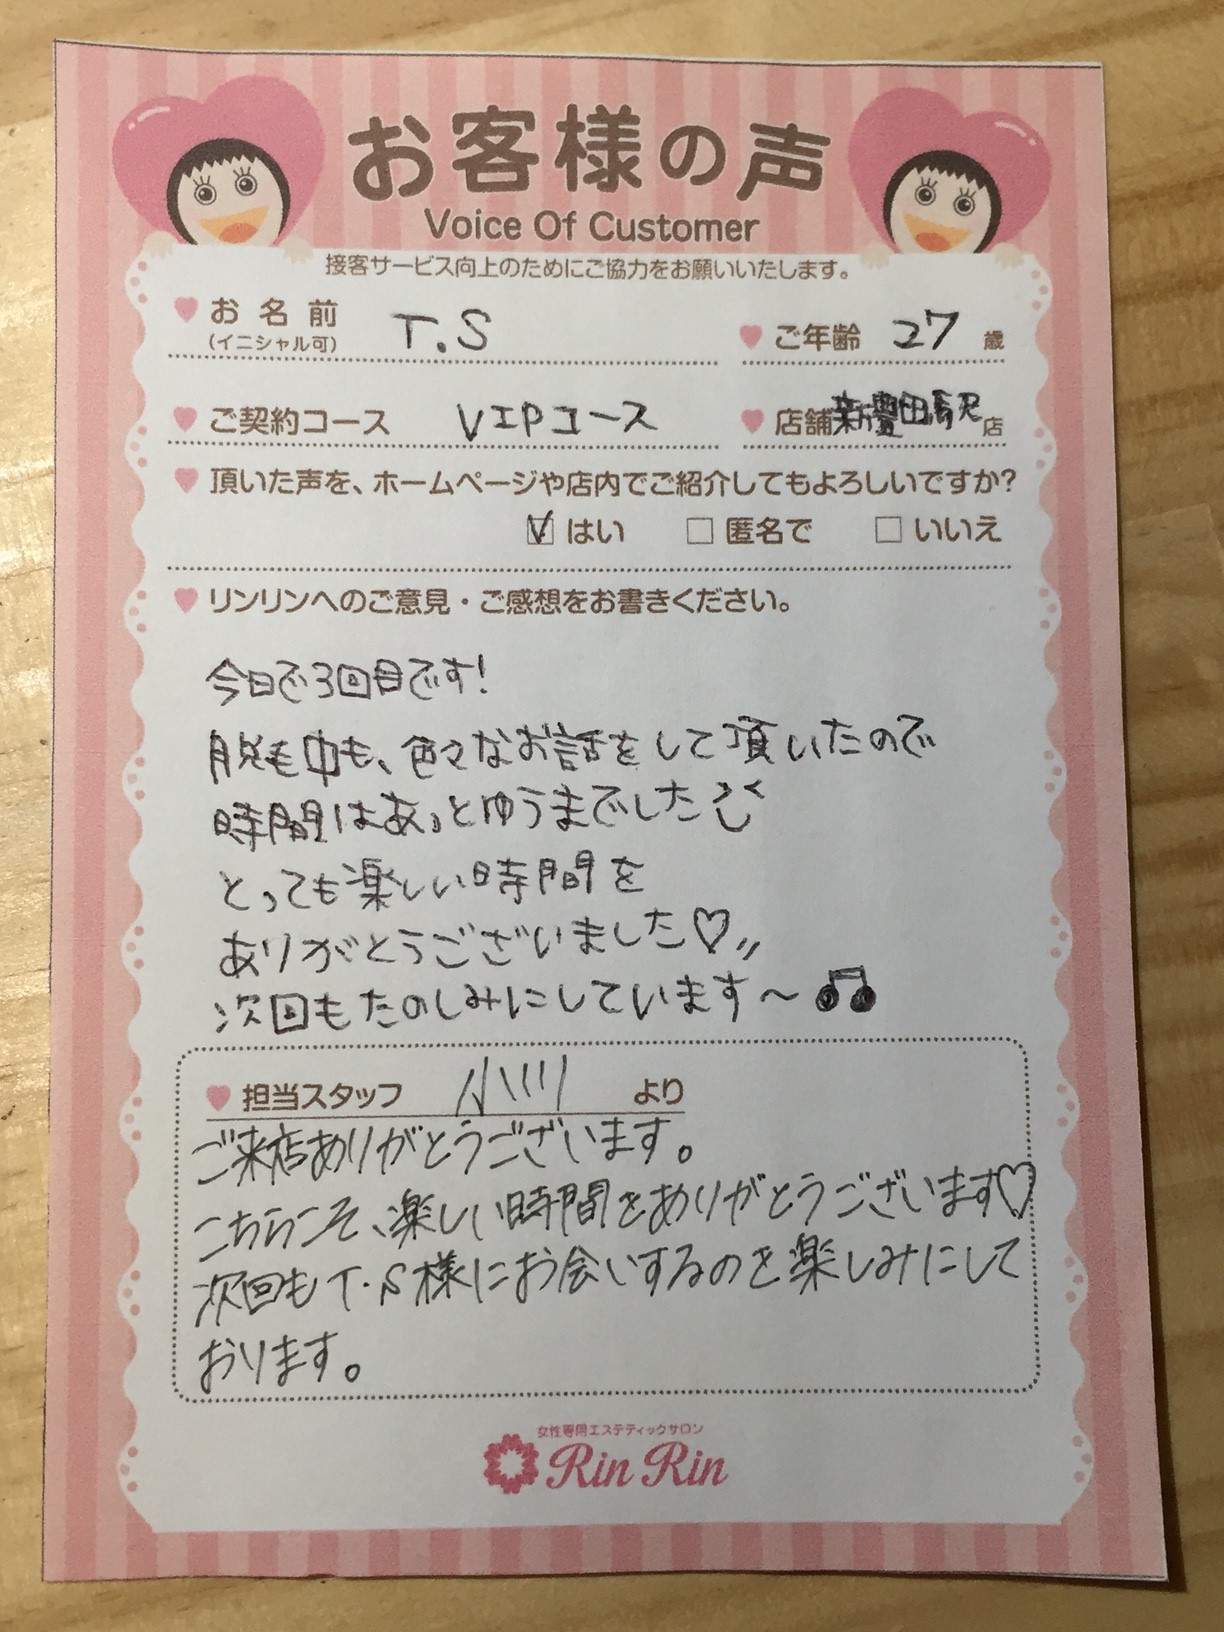 お客様の声
Voice Of Customer
接客サービス向上のためにご協力をお願いいたします。
お名前 T.S ご年齢 27 歳
(イニシャル可)
ご契約コース VIPコース 店舗 店
頂いた声を、ホームページや店内でご紹介してもよろしいですか?
はい 匿名で いいえ
リンリンへのご意見・ご感想をお書きください。
今日で3回目です!
脱毛中も、色々なお話をして頂いたので
時間はあっとゆうまでした
とっても楽しい時間を
ありがとうございました♡〃
次回もたのしみにしています〜♫
担当スタッフ 小川 より
ご来店ありがとうございます。
こちらこそ、楽しい時間をありがとうございます♡
次回もT.S様にお会いするのを楽しみにして
おります。
女性専用エステティックサロン
Rin Rin